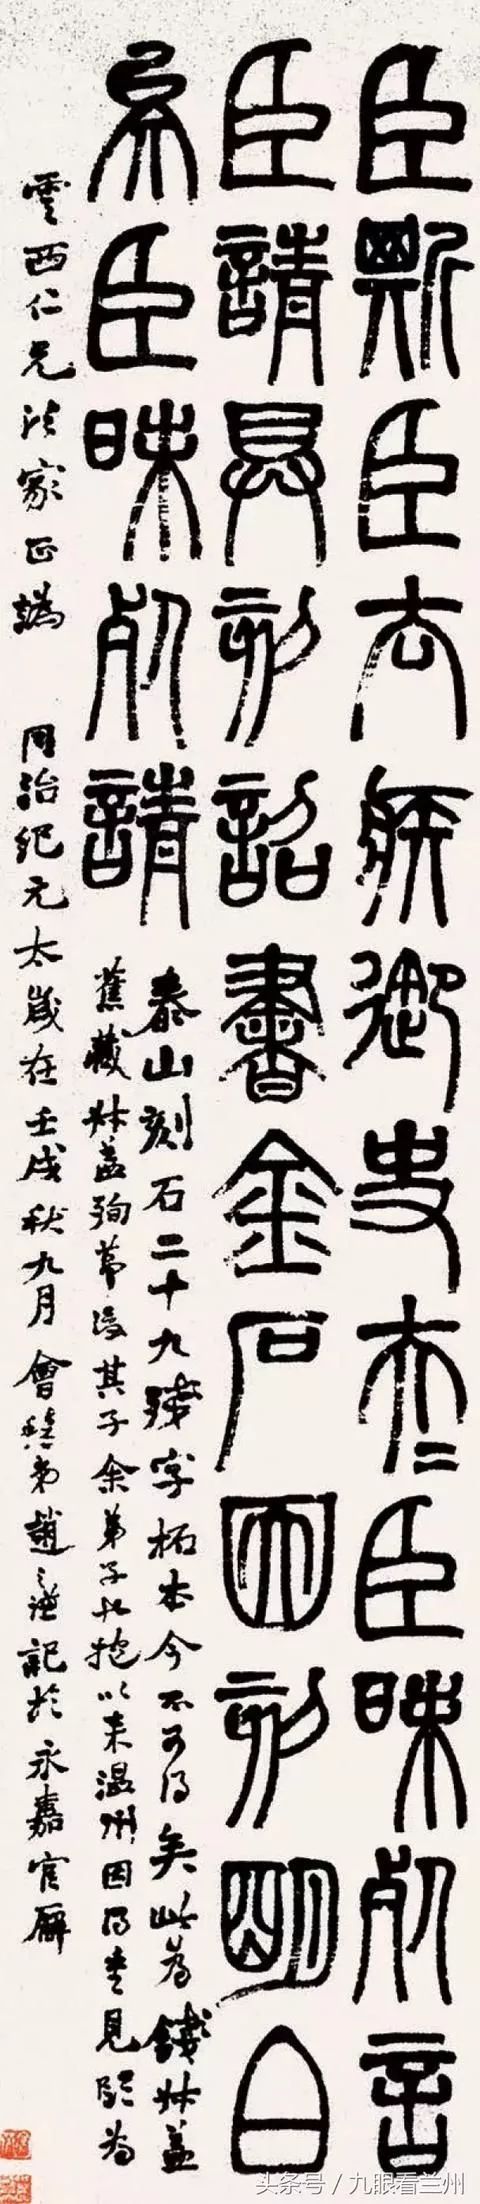 臣斯臣去疾御史夫=臣昧死言
臣請具刻詔書金石因刻明白
矣臣昧死請
泰山刻石二十九殘字柘本今不可得矣此為錢叔蓋
舊藏叔蓋殉節後其子余弟子也抱以來溫州因得重見臨為
雲西仁兄法家正譌 同治紀元太歲在壬戌秋九月會稽弟趙之謙記於永嘉官廨
头条号/九眼看兰州